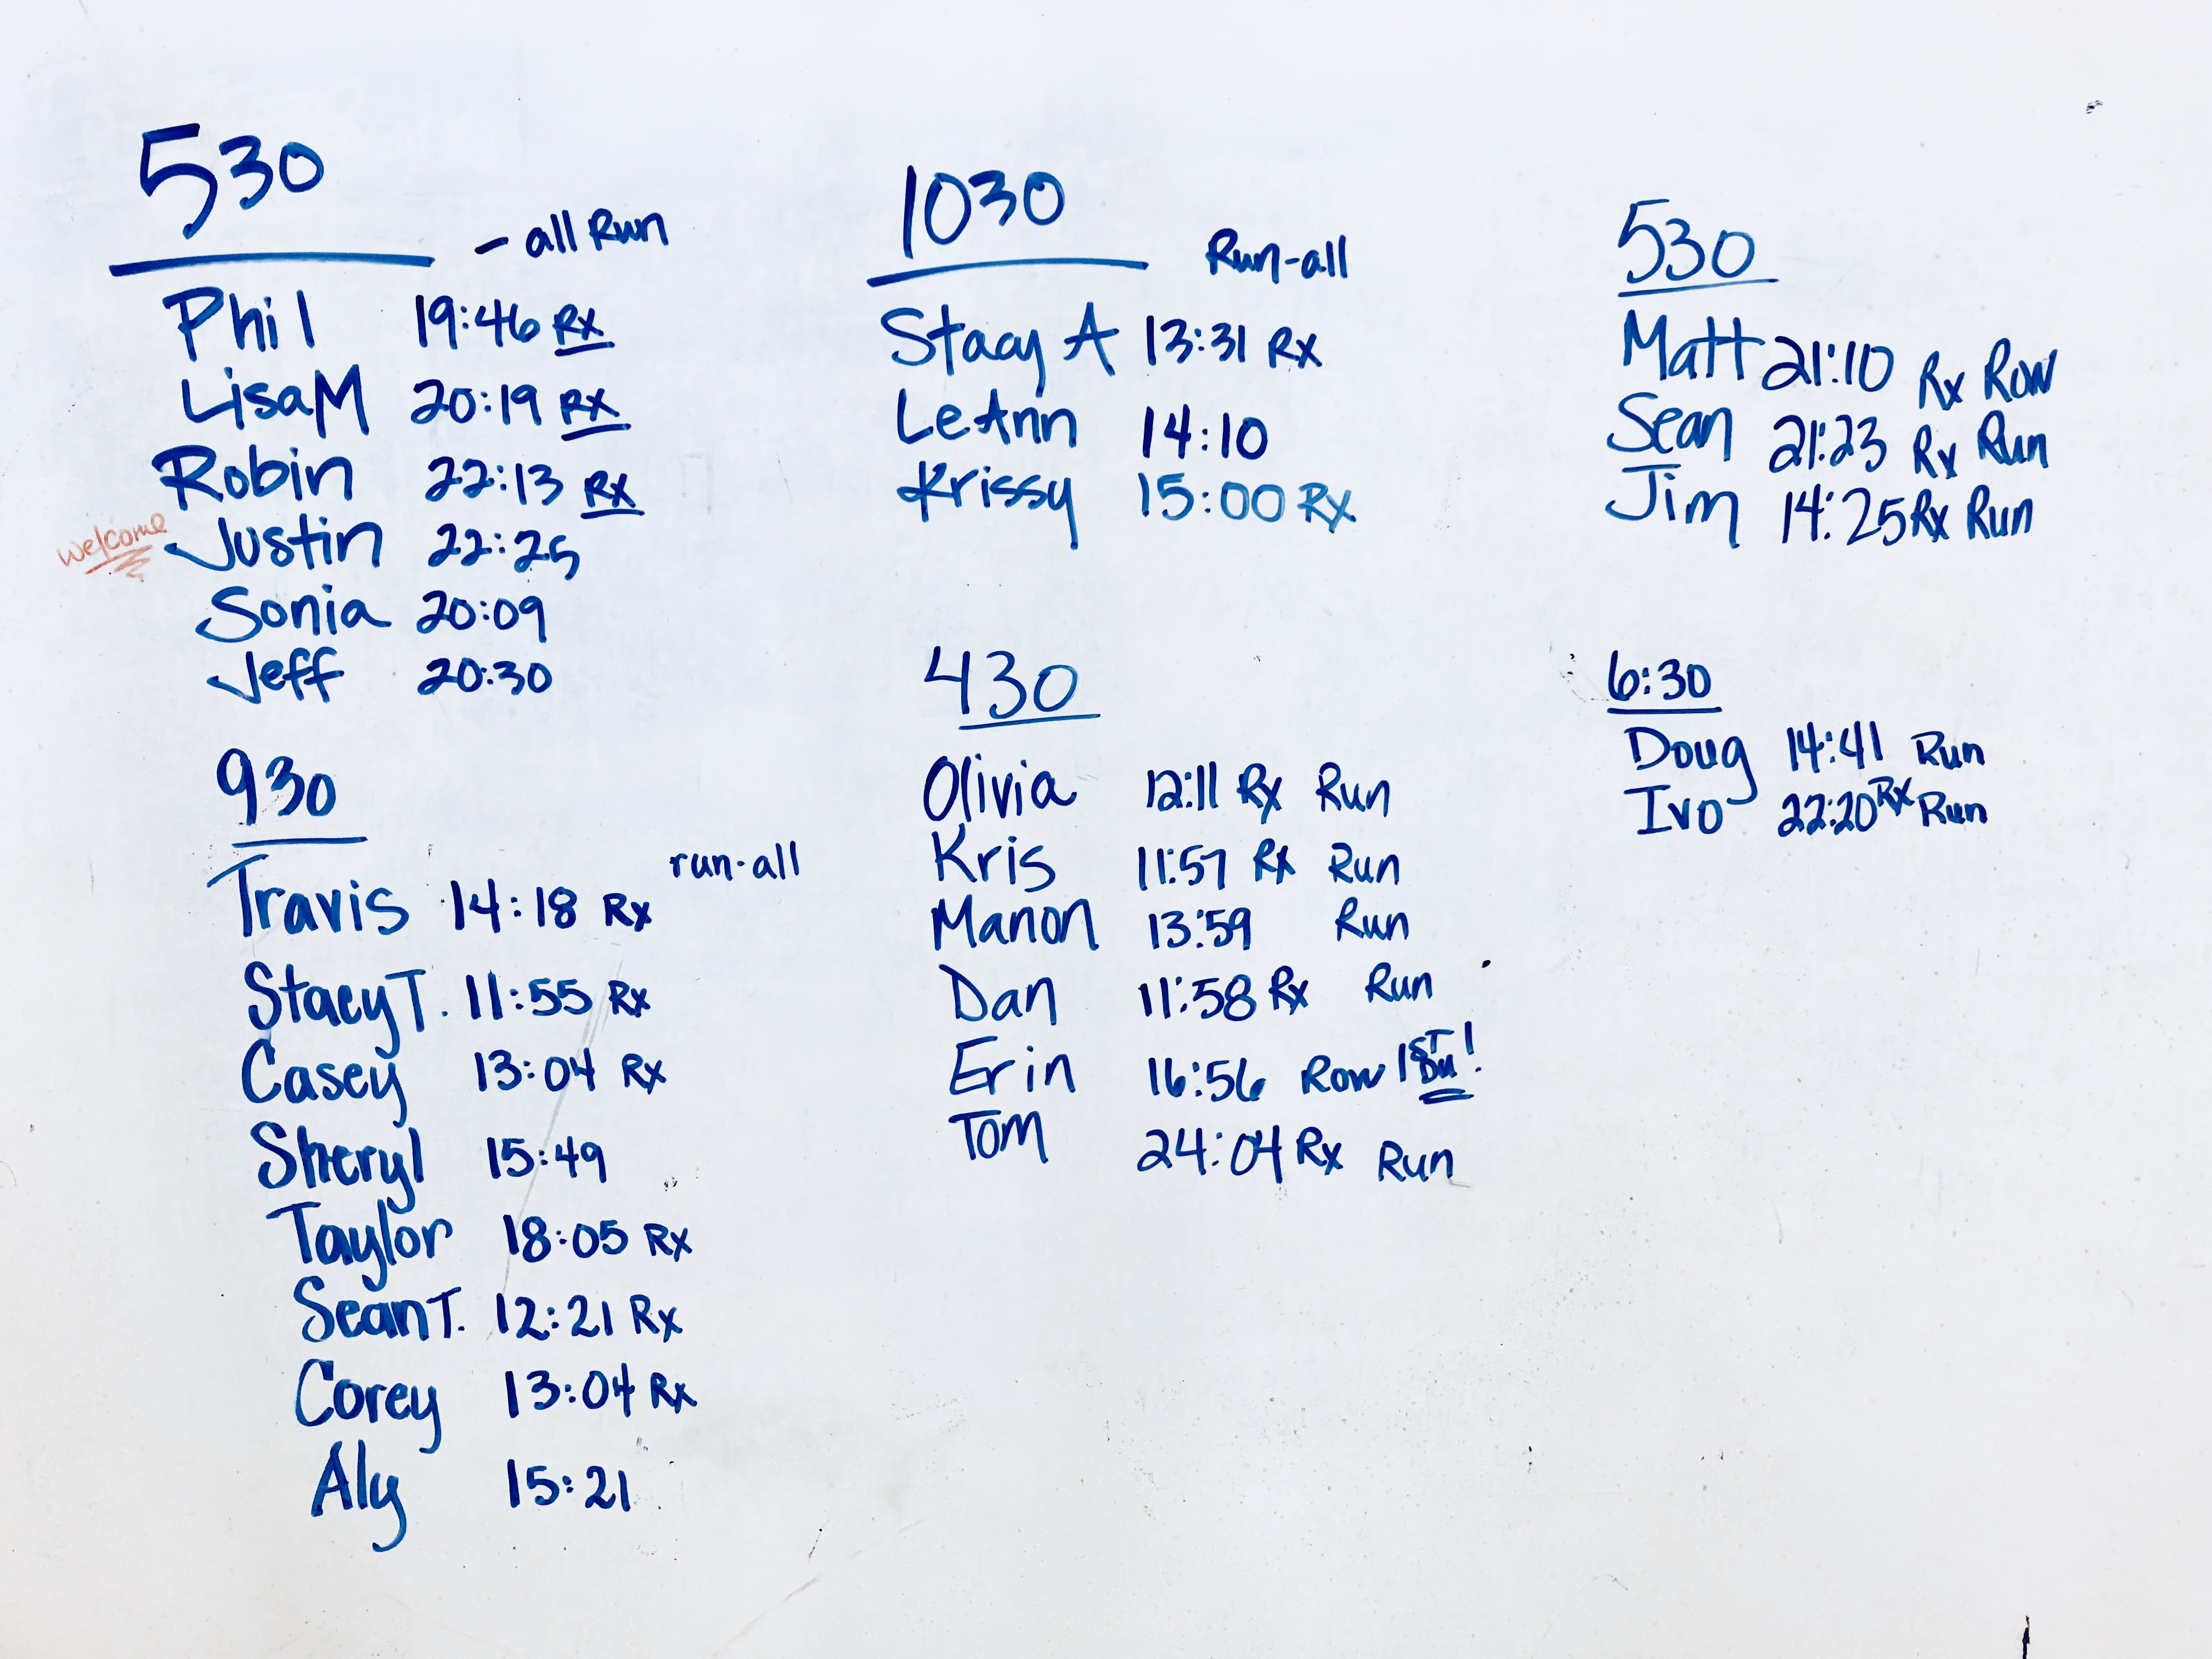 530
- all Run
Phil 19:46 RX
LisaM 20:19 RX
Robin 22:13 RX
welcome Justin 22:25
Sonia 20:09
Jeff 20:30
930
run-all
Travis 14:18 Rx
Stacy T. 11:55 Rx
Casey 13:04 Rx
Sheryl 15:49
Taylor 18:05 Rx
Sean T. 12:21 Rx
Corey 13:04 Rx
Aly 15:21
1030
Run-all
Stacy A 13:31 Rx
LeAnn 14:10
Krissy 15:00 Rx
430
Olivia 12:11 Rx Run
Kris 11:57 Rx Run
Manon 13:59 Run
Dan 11:58 Rx Run
Erin 16:56 Row 1ST !
Tom 24:04 Rx Run
530
Matt 21:10 Rx Row
Sean 21:23 Rx Run
Jim 14:25 Rx Run
6:30
Doug 14:41 Run
Ivo 22:20 Rx Run